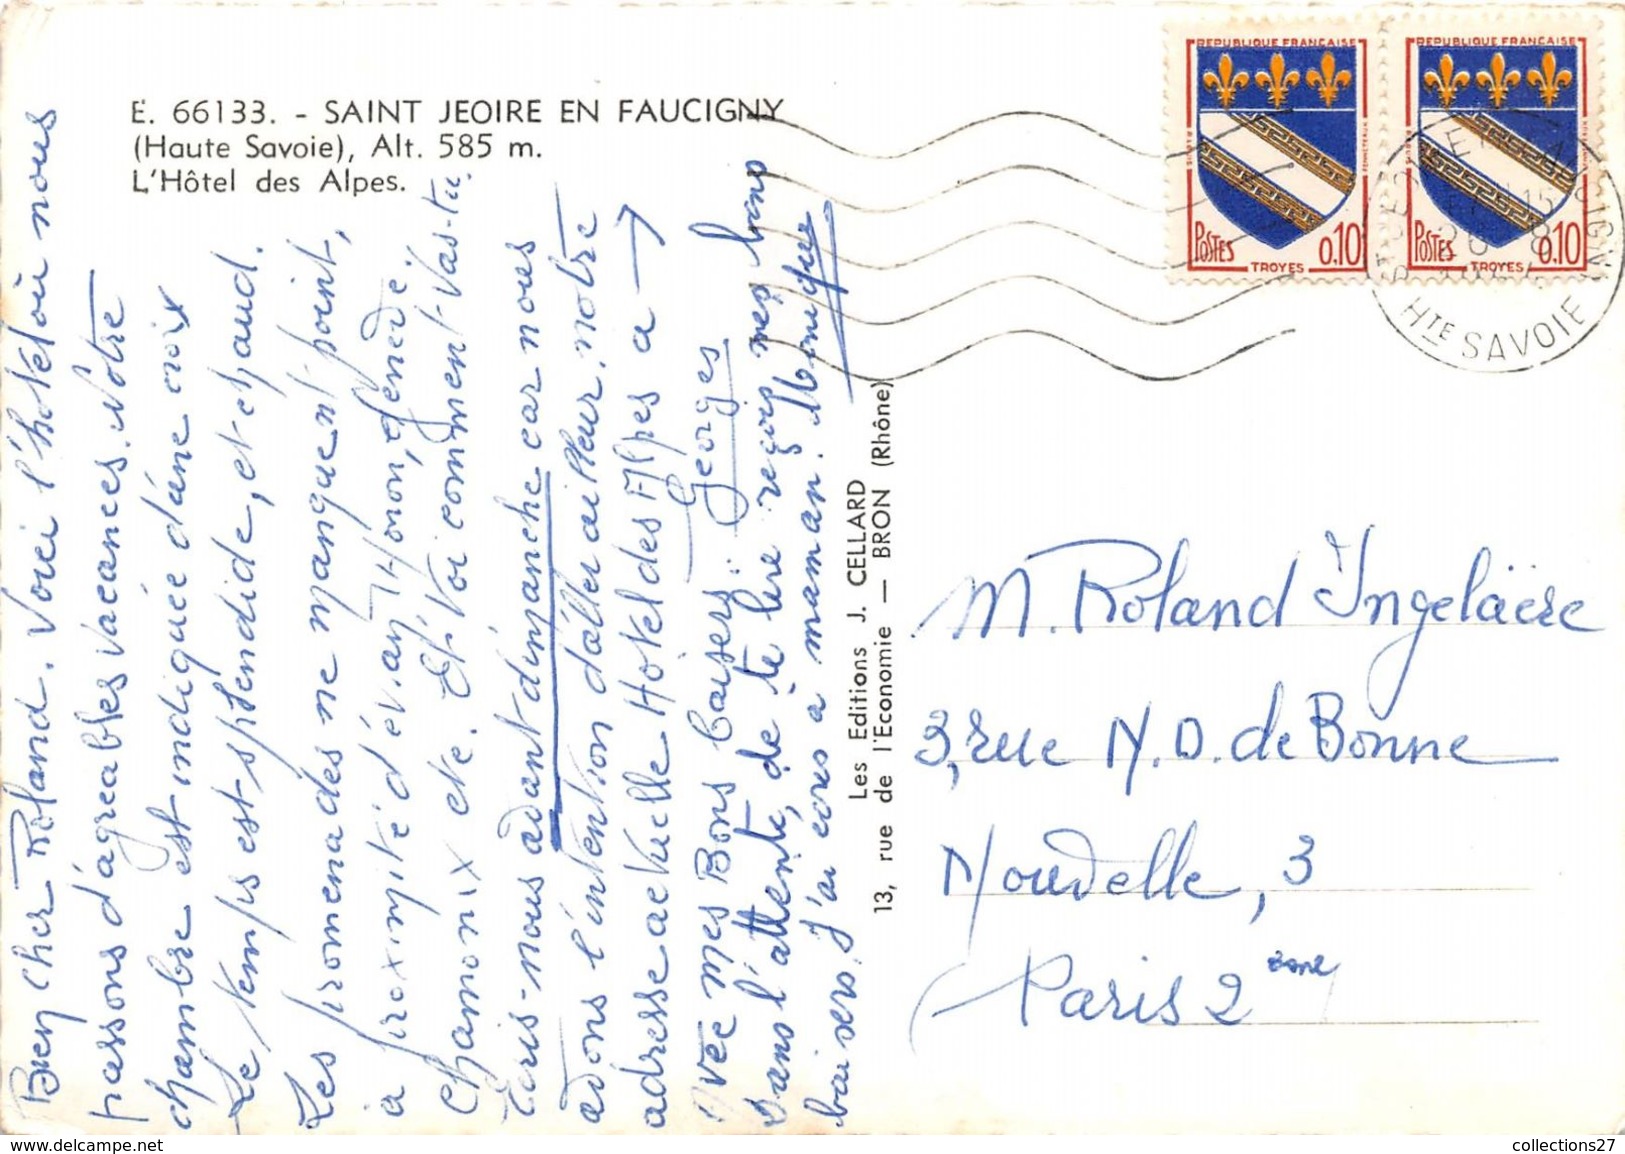 E. 66133. - SAINT JEOIRE EN FAUCIGNY
(Haute Savoie), Alt. 585 m.
L'Hôtel des Alpes.
Bien cher Roland. Voici l'hôtel où nous
passons d'agréables vacances. Notre
chambre est indiquée d'une croix
Le temps est splendide, et chaud.
Les promenades ne manquent point,
à proximité d'évian, Thonon, genève.
Chamonix etc. Et toi comment vas-tu.
Écris-nous avant dimanche car nous
avons l'intention d'aller ailleur. notre
adresse actuelle Hôtel des Alpes a →
Avec mes Bons baisers. Georges
Dans l'attente, de te lire reçois mes bons
baisers. J'ai écris à maman. Monique
Les Editions J. CELLARD
13, rue de l'Economie — BRON (Rhône)
REPUBLIQUE FRANÇAISE
POSTES
0,10
TROYES
REPUBLIQUE FRANÇAISE
POSTES
0,10
TROYES
HTE SAVOIE
M. Roland Ingelaëre
3, rue N.D. de Bonne
Nouvelle, 3
Paris 2 ème
collections27